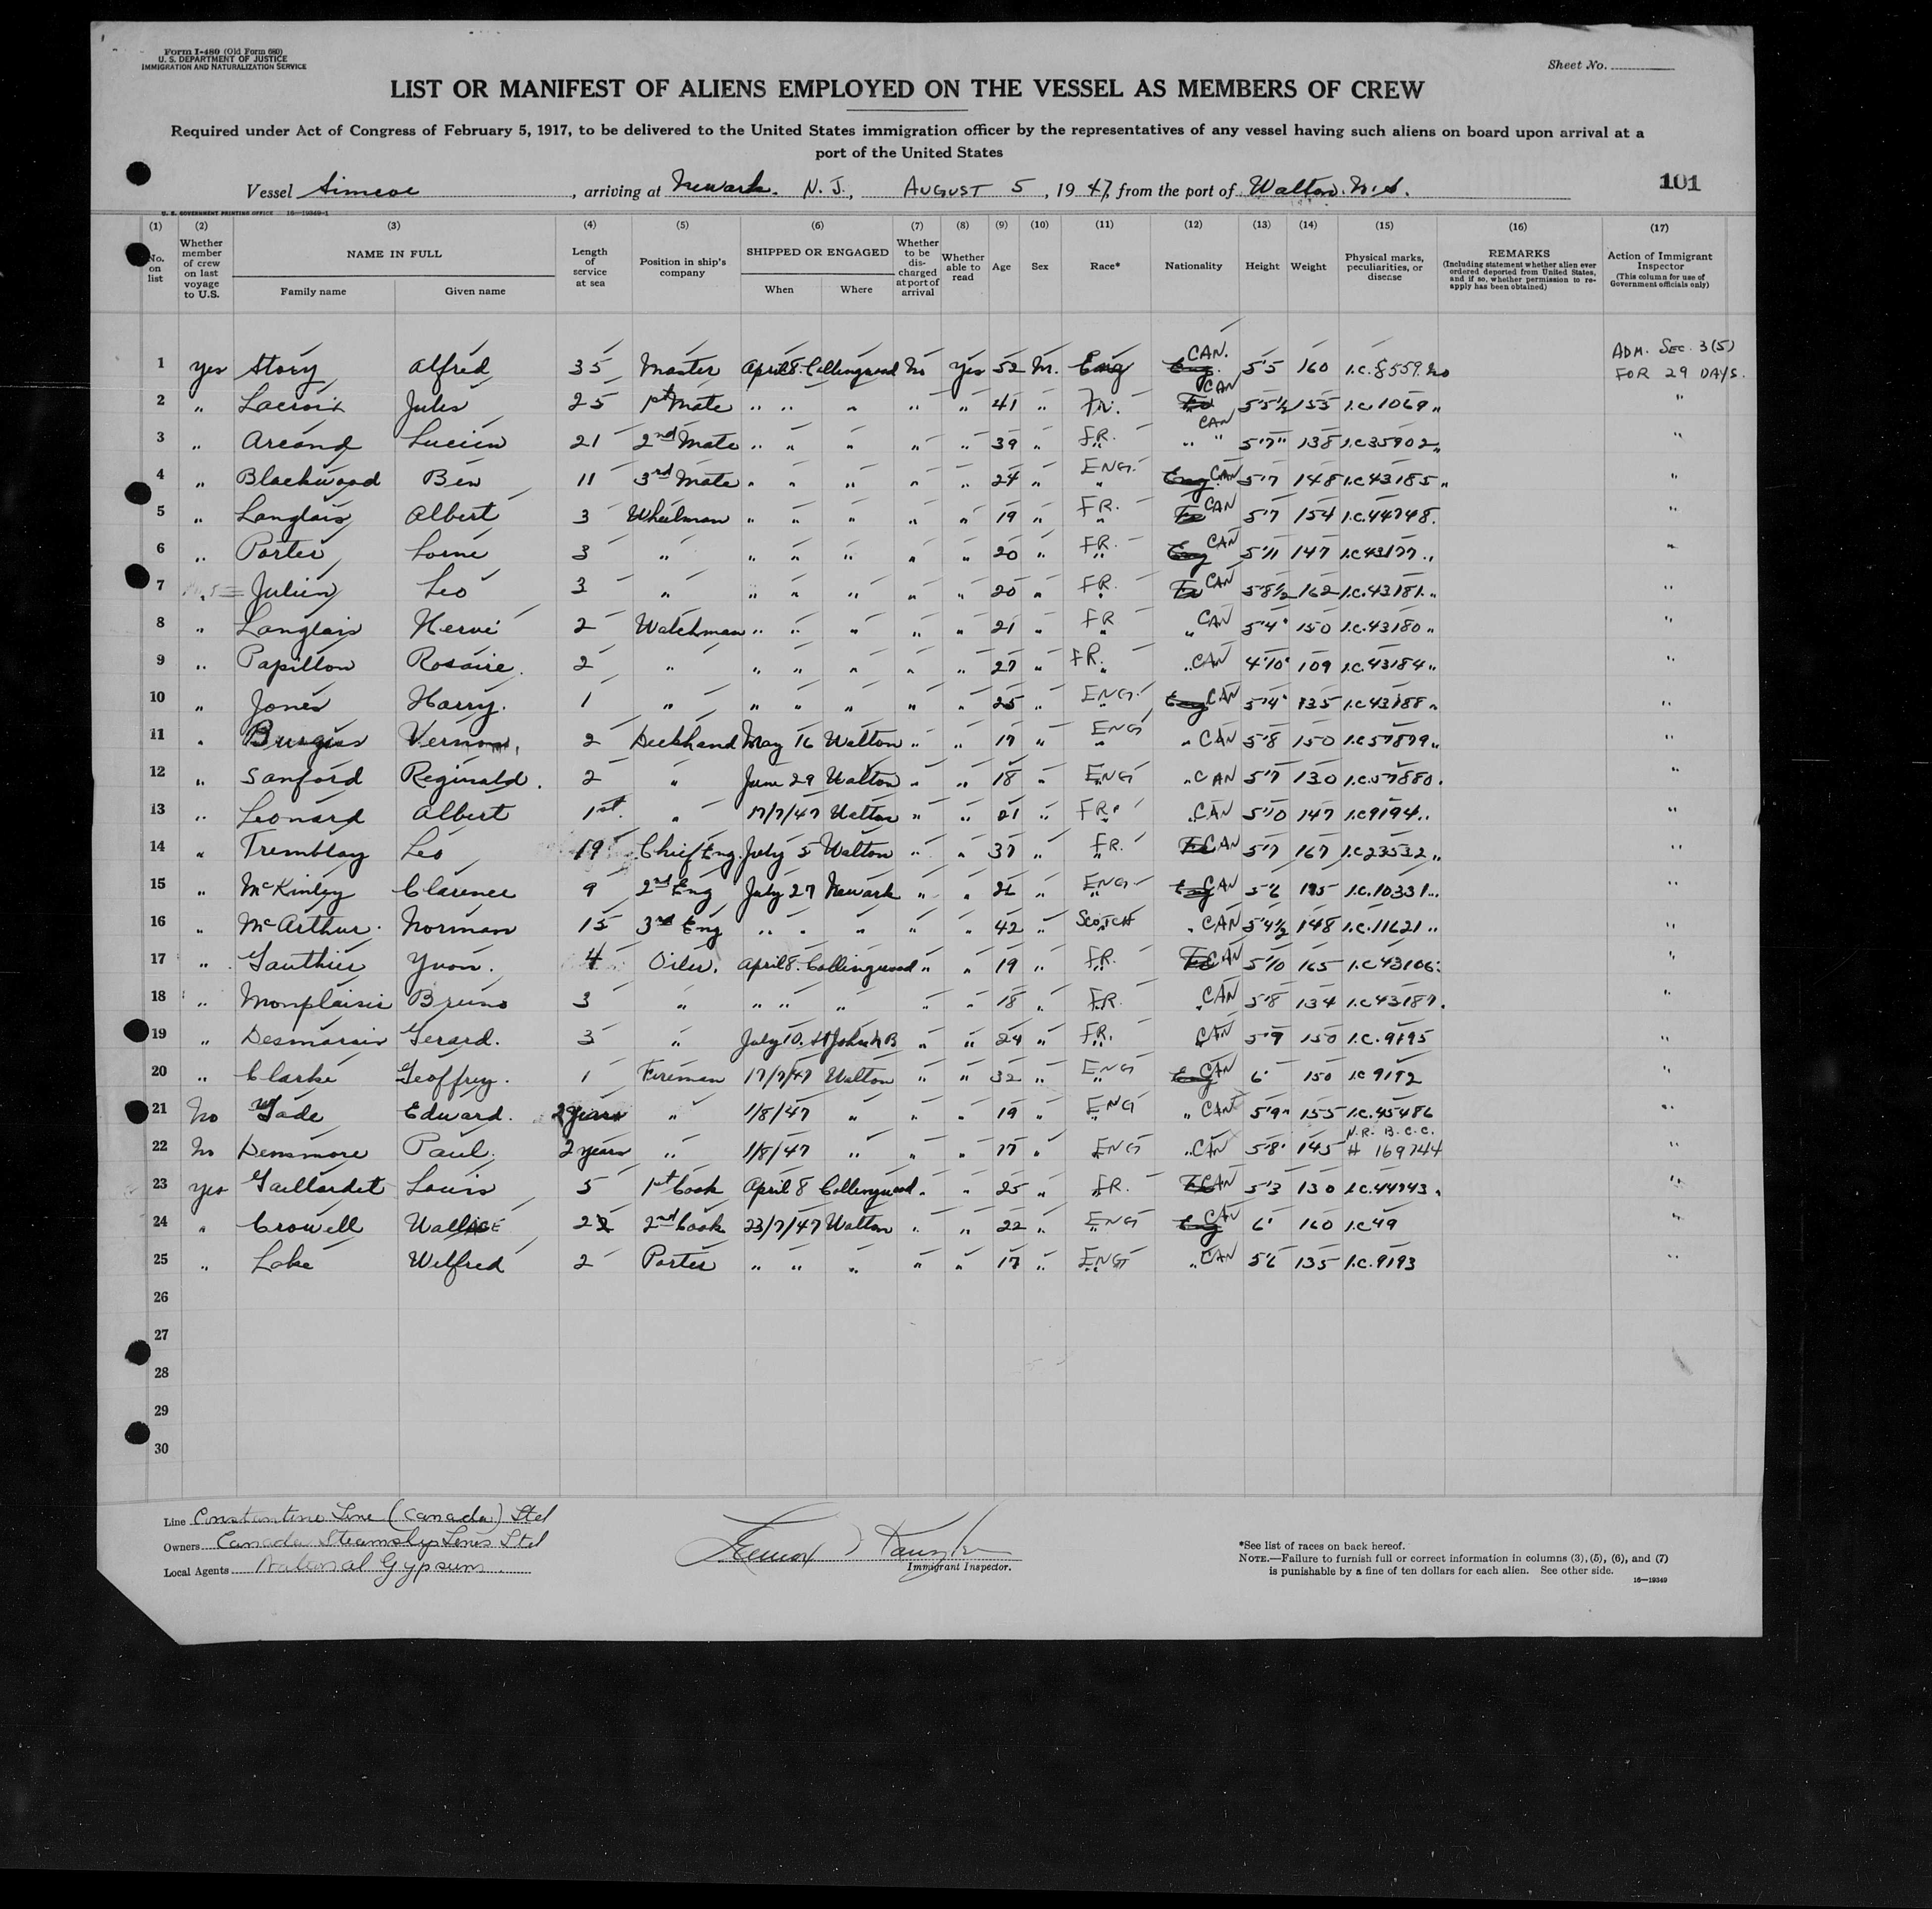 Form I-480 (Old Form 680)
U. S. DEPARTMENT OF JUSTICE
IMMIGRATION AND NATURALIZATION SERVICE
Sheet No.
LIST OR MANIFEST OF ALIENS EMPLOYED ON THE VESSEL AS MEMBERS OF CREW
Required under Act of Congress of February 5, 1917, to be delivered to the United States immigration officer by the representatives of any vessel having such aliens on board upon arrival at a
port of the United States
Vessel Simcoe, arriving at Newark. N. J., AUGUST 5, 1947, from the port of Walton. N.S.
101
U. S. GOVERNMENT PRINTING OFFICE 16—19349-1
(1) (2) (3) (4) (5) (6) (7) (8) (9) (10) (11) (12) (13) (14) (15) (16) (17)
No. on list
Whether member of crew on last voyage to U.S.
NAME IN FULL
Family name
Given name
Length of service at sea
Position in ship's company
SHIPPED OR ENGAGED
When
Where
Whether to be discharged at port of arrival
Whether able to read
Age
Sex
Race*
Nationality
Height
Weight
Physical marks, peculiarities, or disease
REMARKS
(Including statement whether alien ever ordered deported from United States, and if so, whether permission to reapply has been obtained)
Action of Immigrant Inspector
(This column for use of Government officials only)
1 yes Story Alfred 35 Master April 8. Collingwood No Yes 52 M. Eng Eng. CAN. 5'5 160 I.C. 8559. No ADM. SEC. 3(5) FOR 29 DAYS.
2 " Lacroix Jules 25 1st Mate " " " " " 41 " Fr. CAN 5'5½ 155 I.C. 1069 " "
3 " Arcand Lucien 21 2nd Mate " " " " " 39 " FR. " " CAN 5'7" 138 I.C. 35902 " "
4 " Blackwood Ben 11 3rd Mate " " " " " 24 " ENG. Eng CAN 5'7 148 I.C. 43185 " "
5 " Langlais Albert 3 Wheelman " " " " " 19 " FR. CAN 5'7 154 I.C. 44748. "
6 " Porter Lorne 3 " " " " " " 20 " FR. Eng CAN 5'11 147 I.C. 43177 " "
7 " Julien Leo 3 " " " " " " 20 " FR. CAN 5'8½ 162 I.C. 43181. " "
8 " Langlais Hervé 2 Watchman " " " " " 21 " FR " CAN 5'4" 150 I.C. 43180 " "
9 " Papillon Rosaire. 2 " " " " " " 27 " FR. " CAN 4'10" 109 I.C. 43184 " "
10 " Jones Harry. 1 " " " " " " 25 " ENG. Eng CAN 5'4" 135 I.C. 43188 " "
11 " Burgess Vernon 2 Deckhand May 16 Walton " " 17 " ENG " CAN 5'8 150 I.C. 57879 " "
12 " Sanford Reginald. 2 " June 29 Walton " " 18 " ENG " CAN 5'7 130 I.C. 57880. "
13 " Leonard Albert 1st. " 17/7/47 Walton " " 21 " FR. " CAN 5'10 147 I.C. 9194 " "
14 " Tremblay Léo 19 Chief Eng. July 5 Walton " " 37 " FR. CAN 5'7 167 I.C. 23532 " "
15 " McKinley Clarence 9 2nd Eng July 27 Newark " " " ENG Eng CAN 5'6 195 I.C. 10331 " "
16 " McArthur. Norman 15 3rd Eng " " " " " 42 " SCOTCH " CAN 5'4½ 148 I.C. 11621 " "
17 " Gauthier Yvon. 4 Oiler. April 8. Collingwood " " 19 " FR. CAN 5'10 165 I.C. 43106 "
18 " Monplaisir Bruno 3 " " " " " " 18 " FR. " CAN 5'8 134 I.C. 43187. "
19 " Desmarais Gerard. 3 " July 10. St John N B " " 24 " FR. " CAN 5'9 150 I.C. 9195 "
20 " Clarke Geoffrey. 1 Fireman 17/7/47 Walton " " 32 " ENG Eng CAN 6' 150 I.C. 9192 "
21 No Wade Edward. 2 years " 1/8/47 " " " 19 " ENG " CAN 5'9" 155 I.C. 45486 "
22 No Densmore Paul. 2 years " 1/8/47 " " " 17 " ENG " CAN 5'8" 145 N.R. B.C.C. # 169744 "
23 yes Gaillardet Louis 5 1st Cook April 8 Collingwood " " 25 " FR. CAN 5'3 130 I.C. 44743 " "
24 " Crowell Wallace 2 2nd Cook 23/7/47 Walton " " 22 " ENG Eng CAN 6' 160 I.C. 49 "
25 " Lake Wilfred 2 Porter " " " " " 17 " ENG " CAN 5'6 135 I.C. 9193 "
26
27
28
29
30
Line Constantine Line (Canada) Ltd
Owners Canada Steamship Lines Ltd
Local Agents National Gypsum.
Immigrant Inspector.
*See list of races on back hereof.
NOTE.—Failure to furnish full or correct information in columns (3), (5), (6), and (7)
is punishable by a fine of ten dollars for each alien. See other side.
16—19349